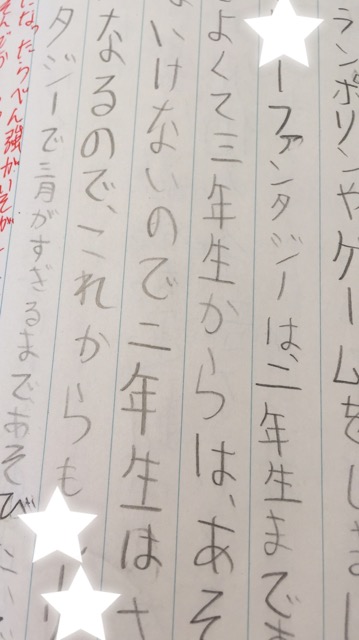 ランポリンやゲームをしまし
ーファンタジーは、二年生まで
よくて三年生からは、あそ
いけないので二年生は
なるので、これからも
タジーで三月がすぎるまであそび
になったらべん強がいそが